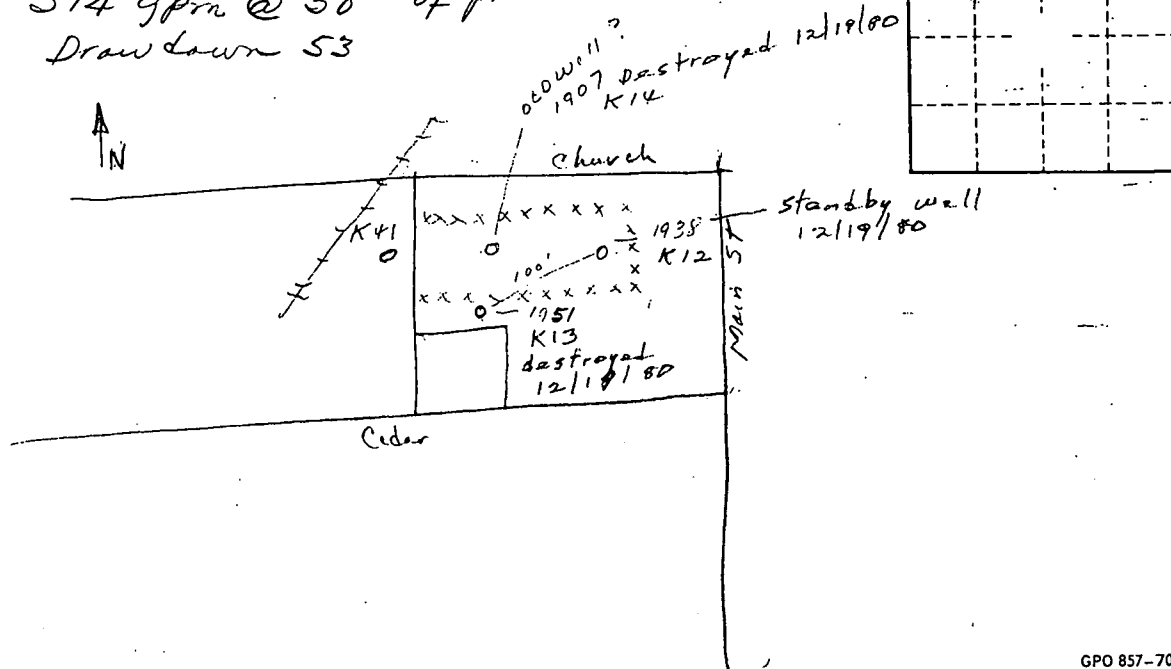 514 gpm @ 50
Drawdown 53
old well?
1907 Destroyed 12/19/80
K14
N
Church
K41
1938
K12
standby well
12/19/80
100'
1951
K13
destroyed
12/19/80
Main St
Cedar
GPO 857-70